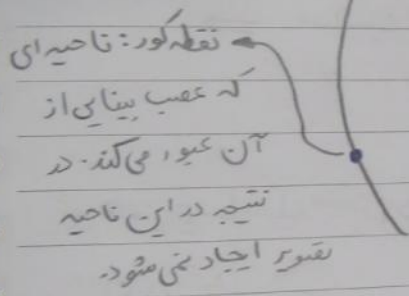 نقطه کور: ناحیه ای
که عصب بینایی از
آن عبور می کند. در
نتیجه در این ناحیه
تصویر ایجاد نمی شود.